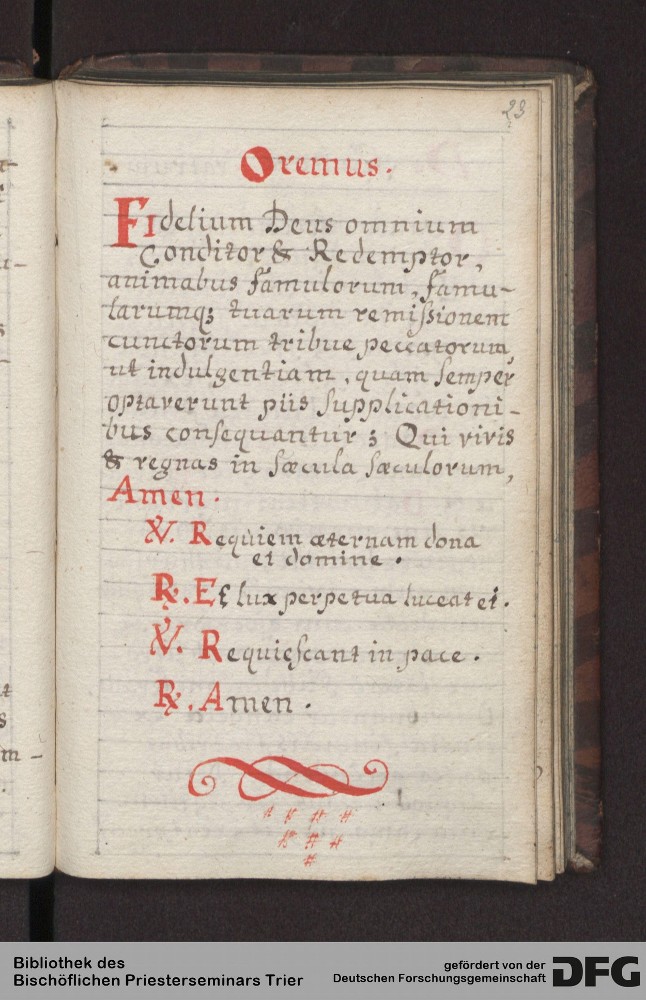 23
Oremus.
Fidelium Deus omnium
Conditor & Redemptor,
animabus famulorum, famu-
larumq3 tuarum remiſsionem
cunctorum tribue peccatorum,
ut indulgentiam, quam ſemper
optaverunt piis ſupplicationi-
bus conſequantur; Qui vivis
& regnas in ſæcula ſæculorum,
Amen.
℣. Requiem æternam dona
ei domine.
℟. Et lux perpetua luceat ei.
℣. Requieſcant in pace.
℟. Amen.
Bibliothek des
Bischöflichen Priesterseminars Trier
gefördert von der
Deutschen Forschungsgemeinschaft
DFG